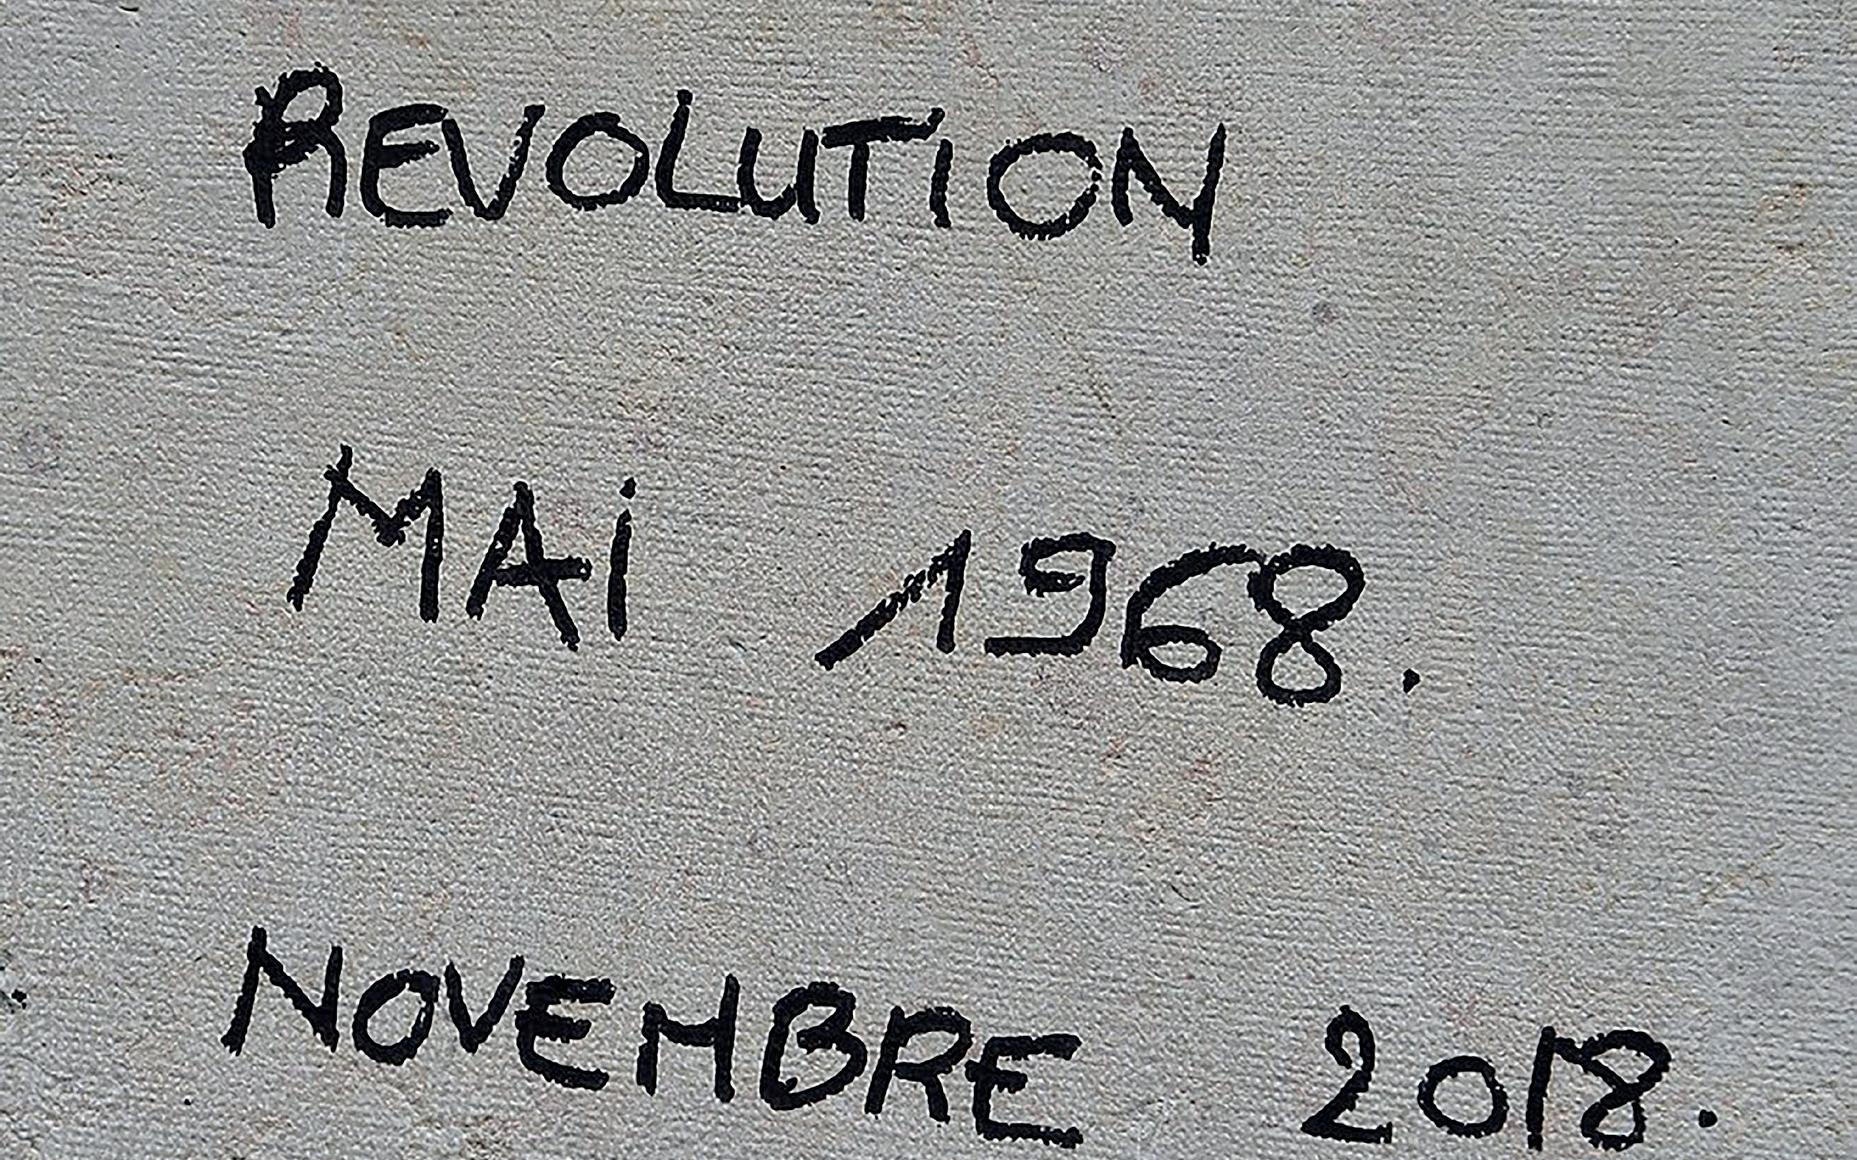 REVOLUTION
MAi 1968.
NOVEMBRE 2018.